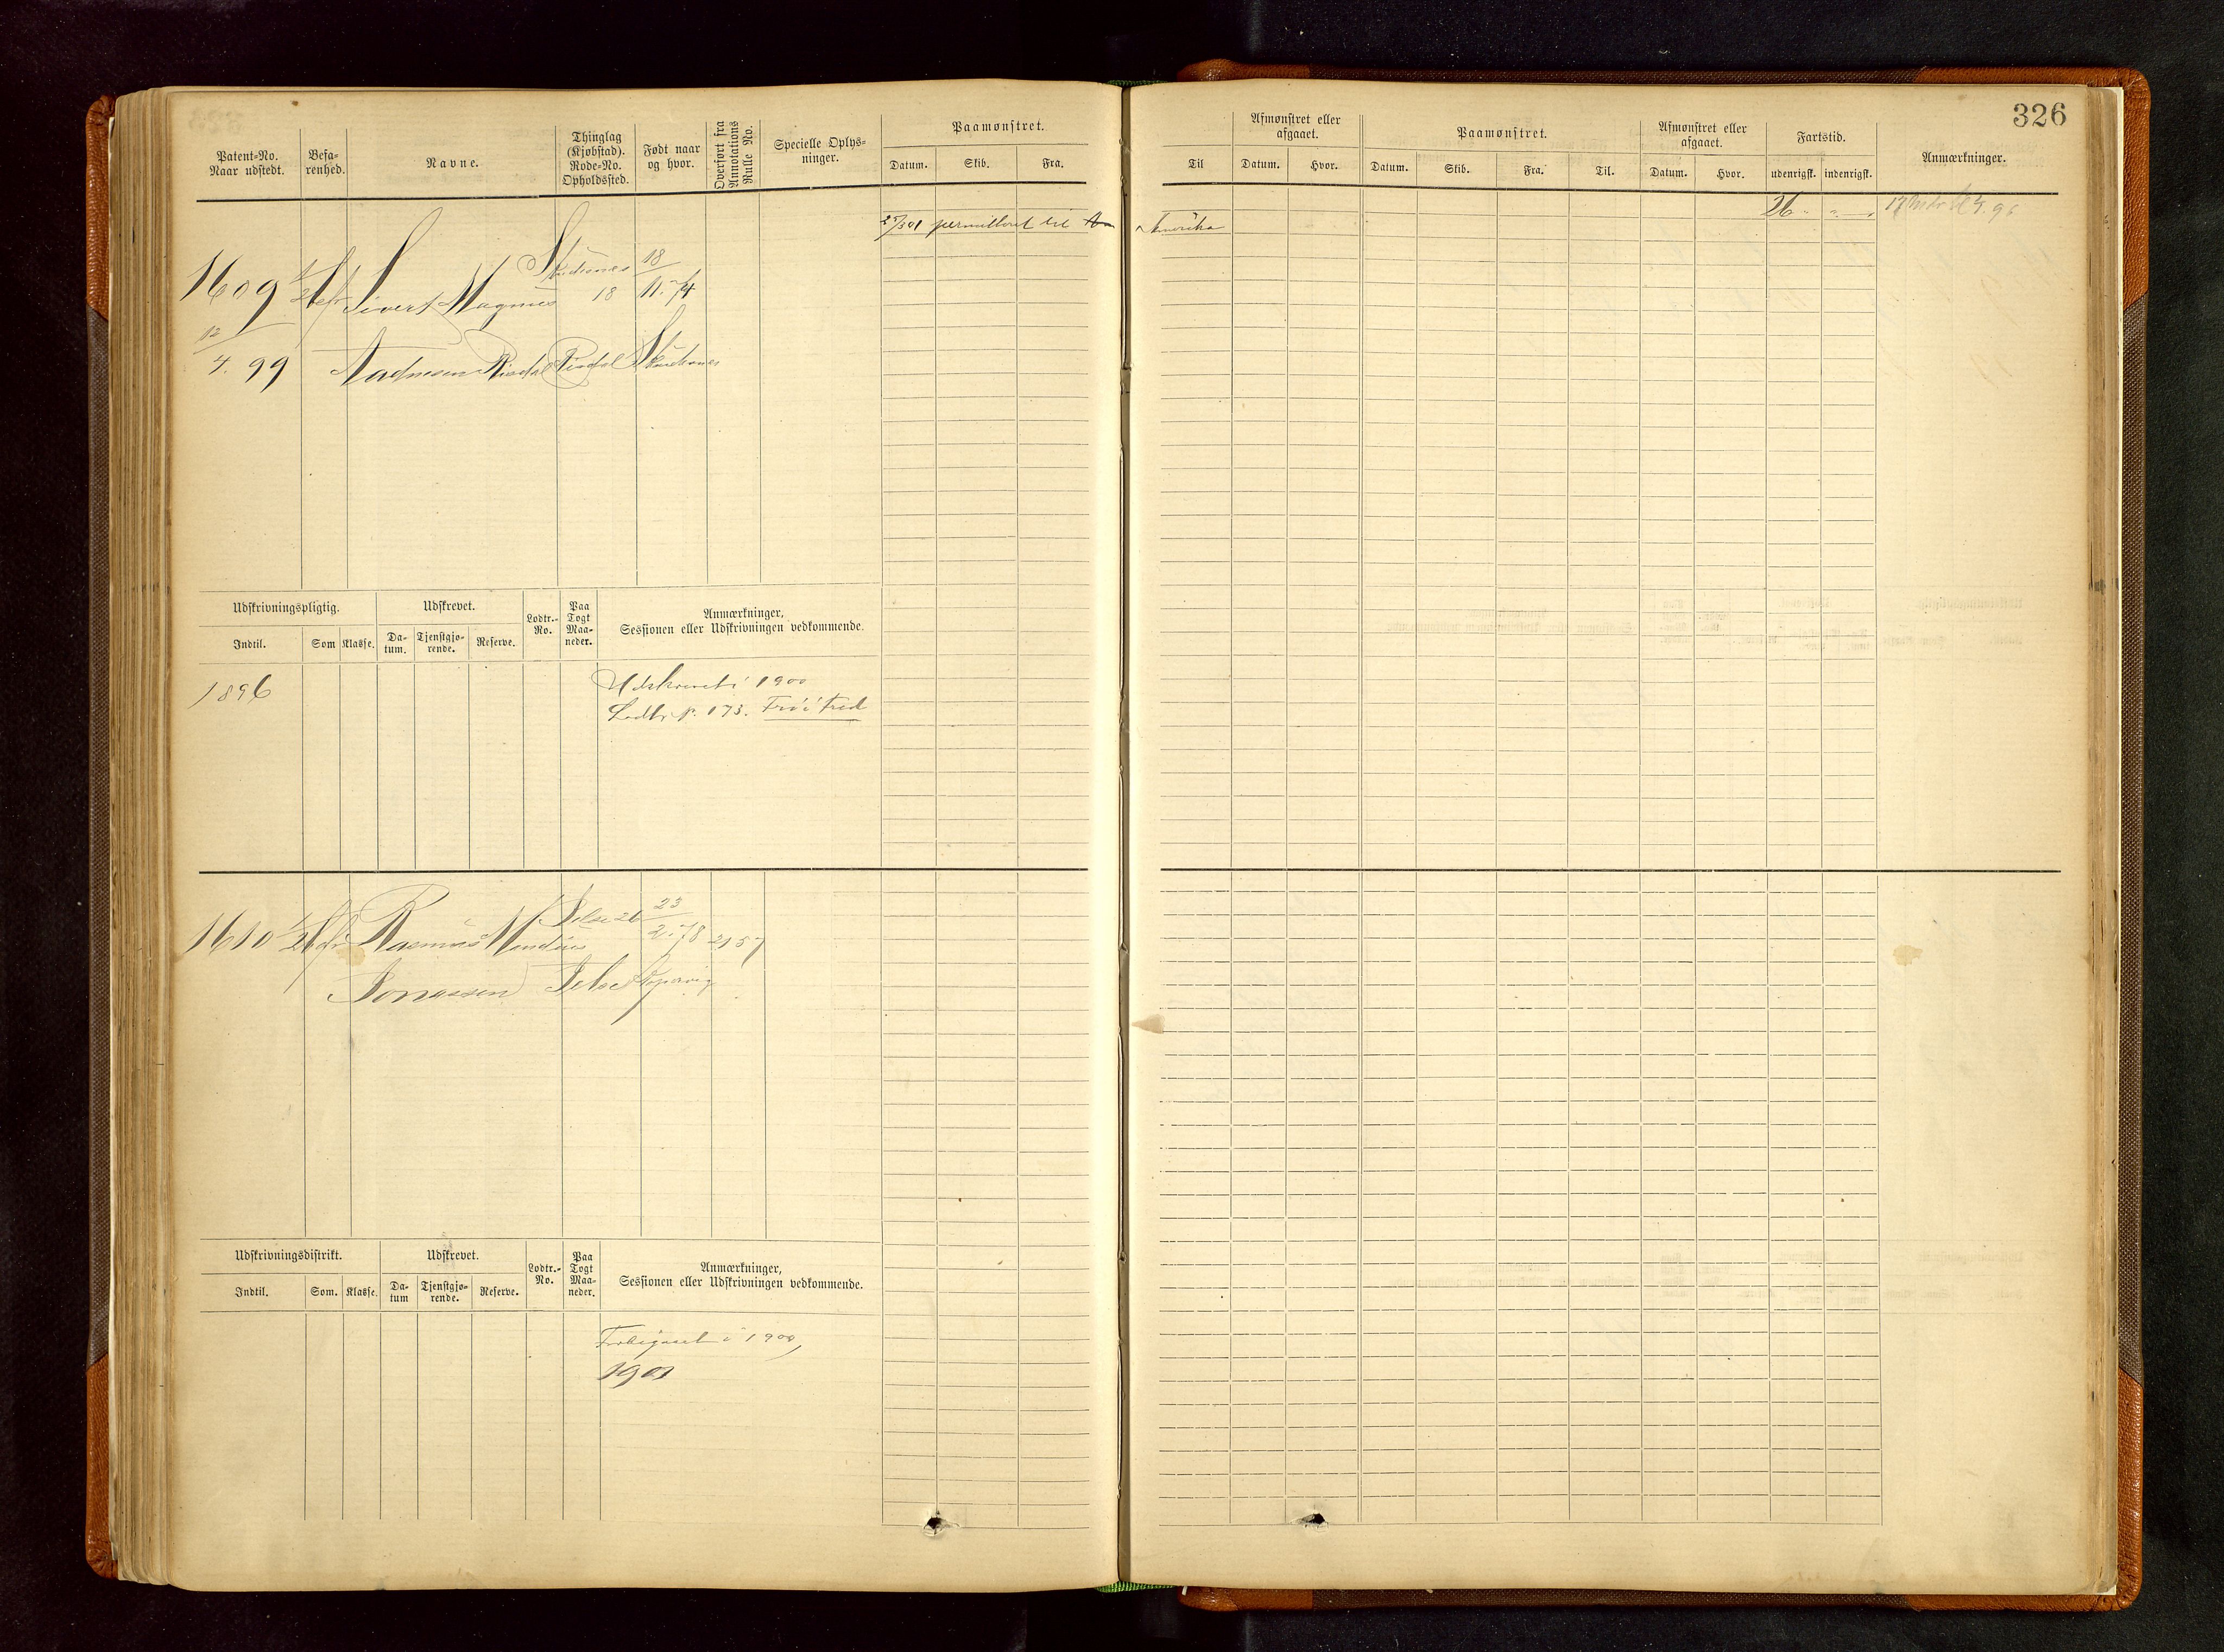 326
Patent-No.
Naar udstedt.
Befa-
renhed.
Navne.
Thinglag
(Kjøbstad).
Rode-No.
Opholdssted.
Født naar
og hvor.
Overført fra
Annotations
Rulle No.
Specielle Oplys-
ninger.
Paamønstret.
Datum. Skib. Fra.
Til
Afmønstret eller
afgaaet.
Datum. Hvor.
Paamønstret.
Datum. Skib. Fra. Til.
Afmønstret eller
afgaaet.
Datum. Hvor.
Fartstid.
udenrigsk. indenrigsk.
Anmærkninger.
permitteret til Amerika
26
Skudenes 18
1609 Sivert Magnus 18 11.74
12
4. 99 Risdal Risdal Skudenes
Udskrivningspligtig.
Indtil. Som Klasse.
Udskrevet.
Da-
tum.
Tjenstgjø-
rende.
Reserve.
Lodtr.-
No.
Paa
Togt
Maa-
neder.
Anmærkninger,
Sessionen eller Udskrivningen vedkommende.
1896
Udskrevet i 1900
Lodtr. No. 173. Fri i Fred
26 23
1610 Rasmus 2.78 2157
Jonassen
Udskrivningsdistrikt.
Indtil. Som. Klasse.
Udskrevet.
Da-
tum
Tjenstgjø-
rende.
Reserve.
Lodtr.-
No.
Paa
Togt
Maa-
neder.
Anmærkninger,
Sessionen eller Udskrivningen vedkommende.
Forbigaaet i 1900,
1901